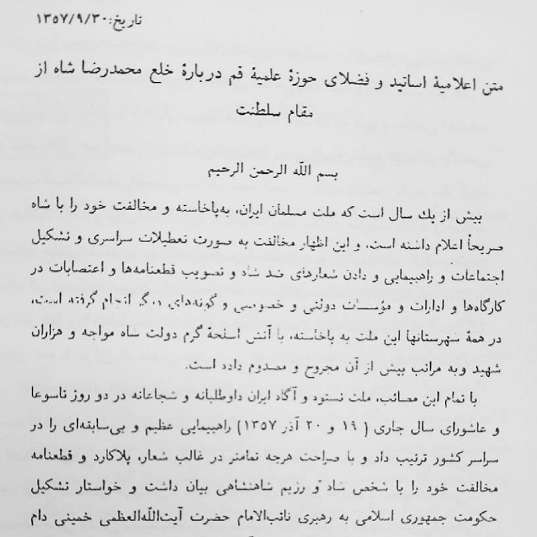 تاریخ: ۱۳۵۷/۹/۳۰
متن اعلامیهٔ اساتید و فضلای حوزهٔ علمیهٔ قم دربارهٔ خلع محمدرضا شاه از
مقام سلطنت
بسم اللّه الرحمن الرحیم
بیش از یك سال است که ملت مسلمان ایران، به‌پاخاسته و مخالفت خود را با شاه
صریحاً اعلام داشته است، و این اظهار مخالفت به صورت تعطیلات سراسری و تشکیل
اجتماعات و راهپیمایی و دادن شعارهای ضد شاه و تصویب قطعنامه‌ها و اعتصابات در
کارگاه‌ها و ادارات و مؤسسات دولتی و خصوصی و گونه‌های دیگر انجام گرفته است،
در همهٔ شهرستانها این ملت به پاخاسته، با آتش اسلحهٔ گرم دولت شاه مواجه و هزاران
شهید و به مراتب بیش از آن مجروح و مصدوم داده است.
با تمام این مصائب، ملت نستوه و آگاه ایران داوطلبانه و شجاعانه در دو روز تاسوعا
و عاشورای سال جاری ( ۱۹ و ۲۰ آذر ۱۳۵۷) راهپیمایی عظیم و بی‌سابقه‌ای را در
سراسر کشور ترتیب داد و با صراحت هرچه تمامتر در غالب شعار، پلاکارد و قطعنامه
مخالفت خود را با شخص شاه و رژیم شاهنشاهی بیان داشت و خواستار تشکیل
حکومت جمهوری اسلامی به رهبری نائب‌الامام حضرت آیت‌اللّه‌العظمی خمینی دام